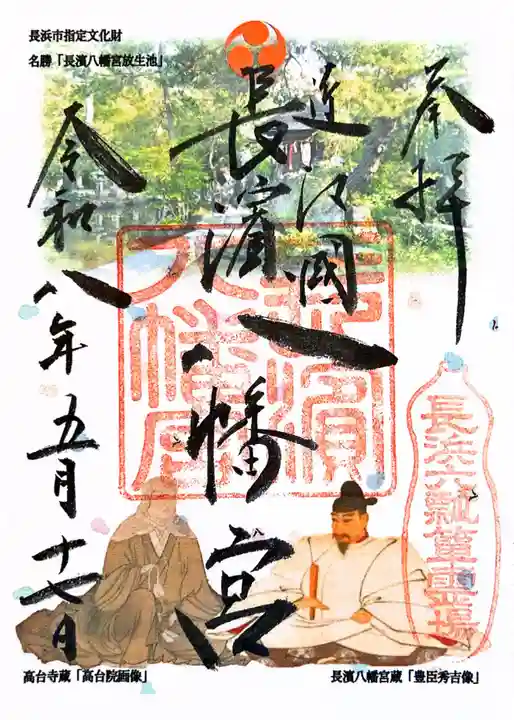 長浜市指定文化財
名勝「長濱八幡宮放生池」
奉拝
近江國
長濱八幡宮
令和八年五月十七日
長濱八幡宮
長浜六瓢箪霊場
高台寺蔵「高台院画像」
長濱八幡宮蔵「豊臣秀吉像」